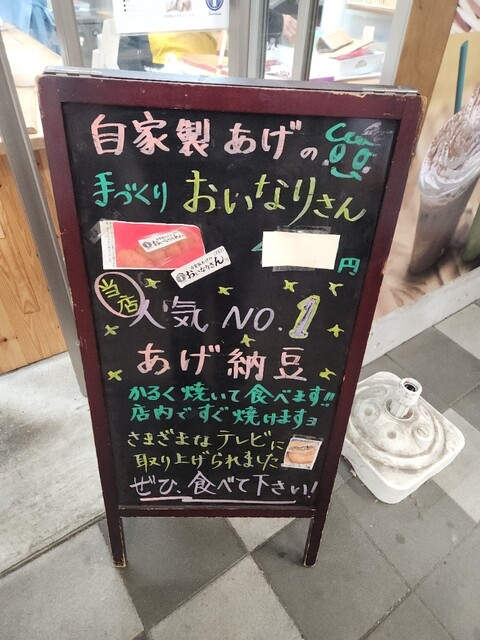 自家製あげの
手づくり おいなりさん
おいなりさん
円
当店
人気 NO.1
あげ納豆
かるく焼いて食べます!!
店内ですぐ焼けますヨ
さまざまなテレビに
取り上げられました
ぜひ、食べて下さい!